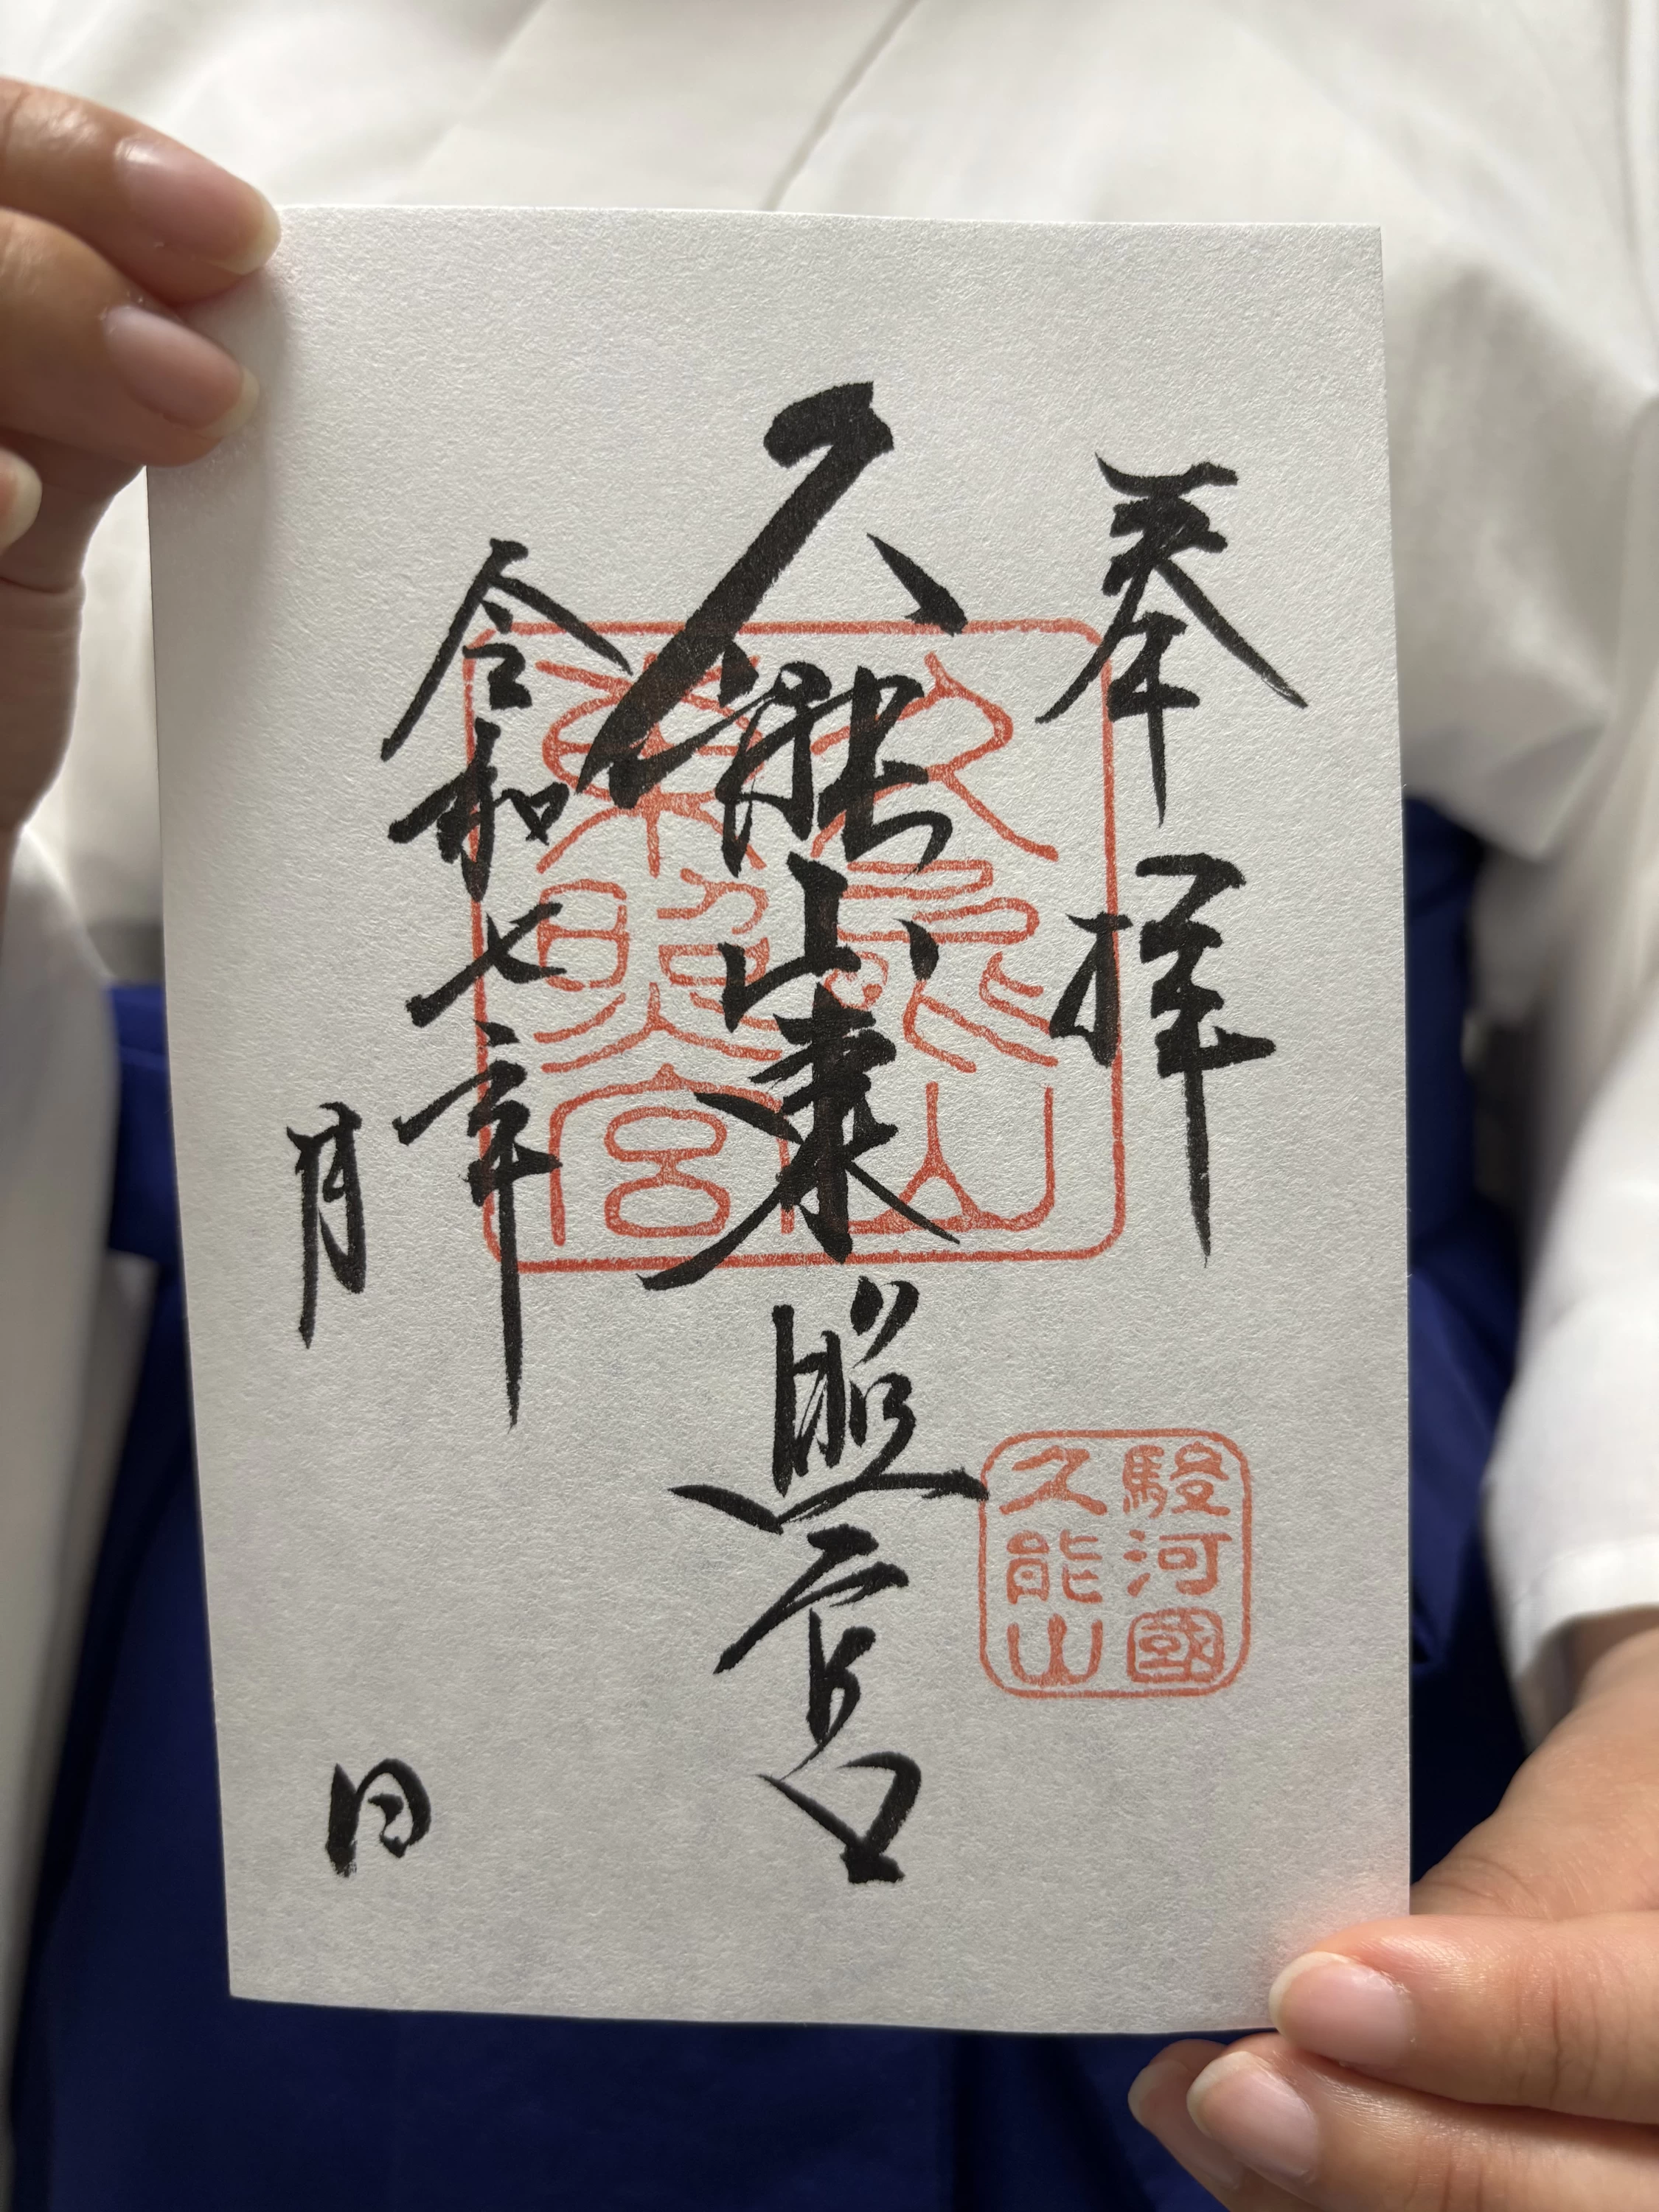 奉拝
久能山東照宮
令和七年
月
日
久能山
東照宮
駿河國
久能山